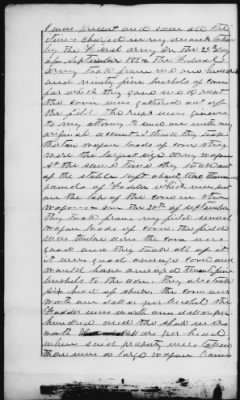 I was present and saw all the
items charged in my account taken
by the Federal army On the 29 day
of September 186 the Federal
Army took from me one hundred
and ninety five bushels of corn
for which they gave me a receipt
the corn was gathered out of
the field. The receipt was given
to my attorney to send on with my
original account at this time they took
thirteen wagon loads of corn they
were the largest size army wagons
at the same time they took out
of the stable loft about two thousand
pounds of fodder which was put
on the top of the corn in their
wagons. On the 30th of September
they took from my field several
wagon loads of corn. the field
was twelve acres the corn was
good and they took all of it
it was good average corn and
would have averaged twenty five
bushels to the acre. They also took
six head of sheep. the corn was
worth one dollar per bushel the
fodder was worth one dollar per
hundred and the sheep were
worth dollars per head
when said property was taken
there were large wagon trains